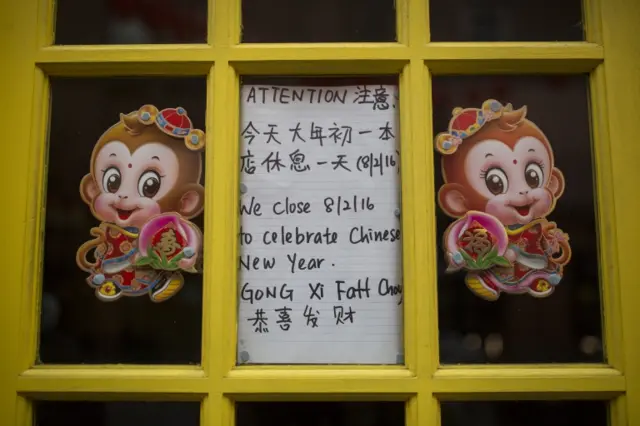 ATTENTION 注意:
今天大年初一本
店休息一天(8/2/16)
We close 8/2/16
to celebrate Chinese
New Year.
GONG Xi Fatt Choy
恭喜发财